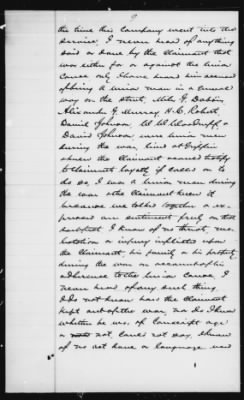 9
the time this company went into the
service. I never heard of anything
said or done by the Claimant that
was either for or against the Union
Cause only I have heard him accused
of being a Union man in a general
way on the street, G. Dobson,
Alexander G. Murray, A. C. Robert
David Johnson,
David Johnson were Union men
during the war, lived at Griffin
& knew the Claimant & could testify
to Claimants loyalty if called on to
do so. I was a Union man during
the war & the Claimant knew it
because we talked together & ex-
pressed our sentiment freely on that
subject. I know of no threat, mo-
lestation or injury inflicted upon
the Claimant, his family or his property
during the war on account of his
adherence to the Union Cause. I
never heard of any such thing.
I do not know how the Claimant
kept out of the war, nor do I know
whether he was of Conscript age
or not, could not say. I heard
of no act done or language used